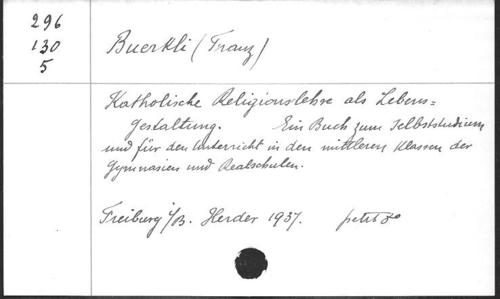 296
130
5
Buerkli (Franz)
Katholische Religionslehre als Lebens=
gestaltung. Ein Buch zum Selbststudium
und für den Unterricht in den mittleren Klassen der
Gymnasien und Realschulen.
Freiburg i/B. Herder 1937. petit 8°